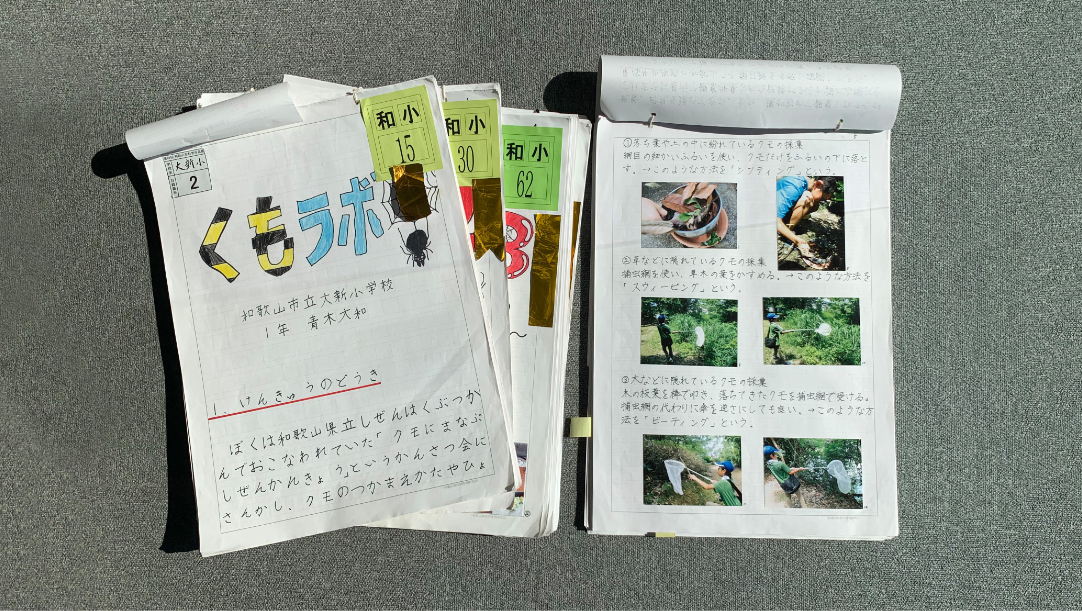 和 小
15
和 小
30
和 小
62
大新小
2
くもラボ
和歌山市立大新小学校
1年 青木大和
1. けんきゅうのどうき
ぼくは和歌山県立しぜんはくぶつか
んでおこなわれていた「クモにまなぶ
しぜんかんきょう」というかんさつ会に
さんかし、クモのつかまえかたやひょ
①落ち葉や土の中に紛れているクモの採集
網目の細かいふるいを使い、クモだけをふるいの下に落と
す。→このような方法を「シフティング」という。
②草などに隠れているクモの採集
捕虫網を使い、草木の葉をかすめる。→このような方法を
「スウィーピング」という。
③木などに隠れているクモの採集
木の枝葉を棒で叩き、落ちてきたクモを捕虫網で受ける。
捕虫網の代わりに傘を逆さにしても良い。→このような方
法を「ビーティング」という。